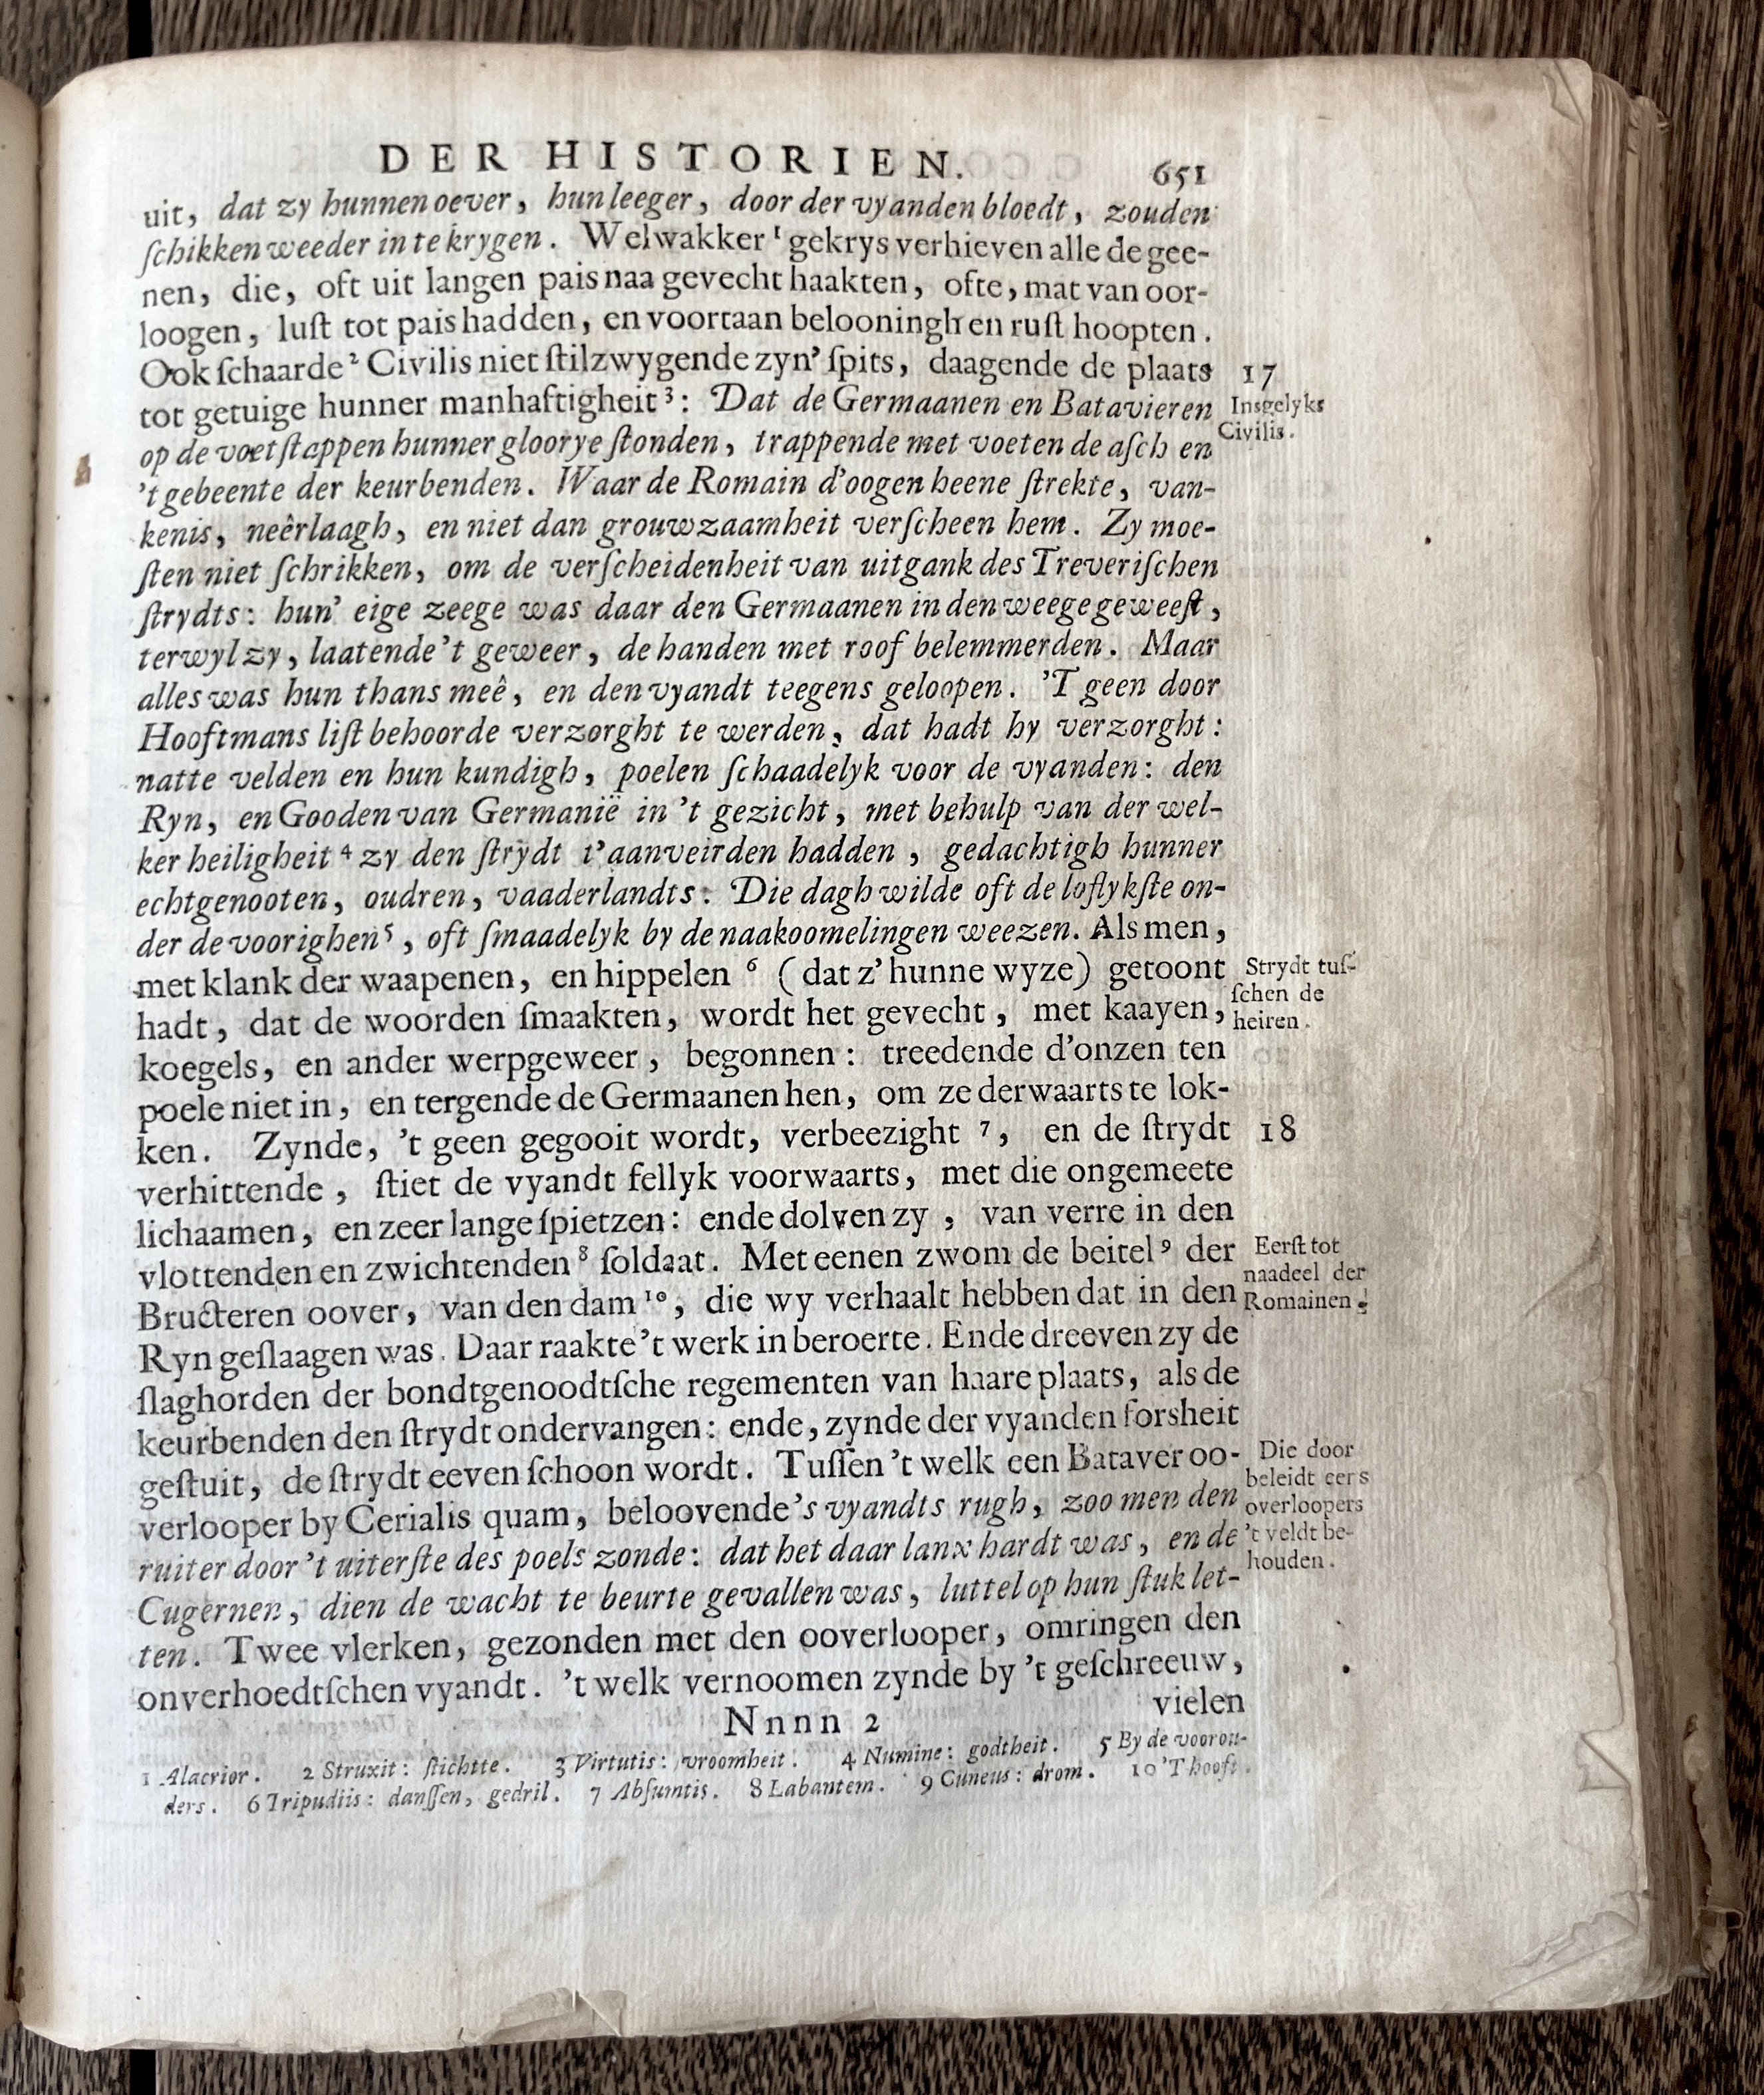 DER HISTORIEN. 651
uit, dat zy hunnen oever, hun leeger, door der vyanden bloedt, zouden
ſchikken weeder in te krygen. Wel wakker¹ gekrys verhieven alle de gee-
nen, die, oft uit langen pais naa gevecht haakten, ofte, mat van oor-
loogen, luſt tot pais hadden, en voortaan belooningh en ruſt hoopten.
Ook ſchaarde² Civilis niet ſtilzwygende zyn' ſpits, daagende de plaats
17
tot getuige hunner manhaftigheit³: Dat de Germaanen en Batavieren
Insgelyks
Civilis.
op de voetſtappen hunner gloorye ſtonden, trappende met voeten de aſch en
't gebeente der keurbenden. Waar de Romain d'oogen heene ſtrekte, van-
kenis, neêrlaagh, en niet dan grouwzaamheit verſcheen hem. Zy moe-
ſten niet ſchrikken, om de verſcheidenheit van uitgank des Treveriſchen
ſtrydts: hun' eige zeege was daar den Germaanen in den weege geweeſt,
terwyl zy, laatende 't geweer, de handen met roof belemmerden. Maar
alles was hun thans meê, en den vyandt teegens geloopen. 'T geen door
Hooftmans liſt behoorde verzorght te werden, dat hadt hy verzorght:
natte velden en hun kundigh, poelen ſchaadelyk voor de vyanden: den
Ryn, en Gooden van Germanië in 't gezicht, met behulp van der wel-
ker heiligheit⁴ zy den ſtrydt t'aanveirden hadden, gedachtigh hunner
echtgenooten, oudren, vaaderlandts: Die dagh wilde oft de loflykſte on-
der de voorighen⁵, oft ſmaadelyk by de naakoomelingen weezen. Als men,
met klank der waapenen, en hippelen⁶ (dat z' hunne wyze) getoont
Strydt tuſ-
ſchen de
heiren.
hadt, dat de woorden ſmaakten, wordt het gevecht, met kaayen,
koegels, en ander werpgeweer, begonnen: treedende d'onzen ten
poele niet in, en tergende de Germaanen hen, om ze derwaarts te lok-
ken. Zynde, 't geen gegooit wordt, verbeezight⁷, en de ſtrydt
18
verhittende, ſtiet de vyandt fellyk voorwaarts, met die ongemeete
lichaamen, en zeer lange ſpietzen: ende dolven zy, van verre in den
vlottenden en zwichtenden⁸ ſoldaat. Met eenen zwom de beitel⁹ der
Eerſt tot
naadeel der
Romainen.
Bructeren oover, van den dam¹⁰, die wy verhaalt hebben dat in den
Ryn geſlaagen was. Daar raakte 't werk in beroerte. Ende dreeven zy de
ſlaghorden der bondtgenoodtſche regementen van haare plaats, als de
keurbenden den ſtrydt ondervangen: ende, zynde der vyanden forsheit
geſtuit, de ſtrydt eeven ſchoon wordt. Tuſſen 't welk een Bataver oo-
Die door
beleidt eens
overloopers
't veldt be-
houden.
verlooper by Cerialis quam, beloovende 's vyandts rugh, zoo men den
ruiter door 't uiterſte des poels zonde: dat het daar lanx hardt was, en de
Cugernen, dien de wacht te beurte gevallen was, luttel op hun ſtuk let-
ten. Twee vlerken, gezonden met den ooverlooper, omringen den
onverhoedtſchen vyandt. 't welk vernoomen zynde by 't geſchreeuw,
vielen
Nnnn 2
1 Alacrior. 2 Struxit: ſtichtte. 3 Virtutis: vroomheit. 4 Numine: godtheit. 5 By de voorou-
ders. 6 Tripudiis: danſſen, gedril. 7 Abſumtis. 8 Labantem. 9 Cuneus: drom. 10 'T hooft.